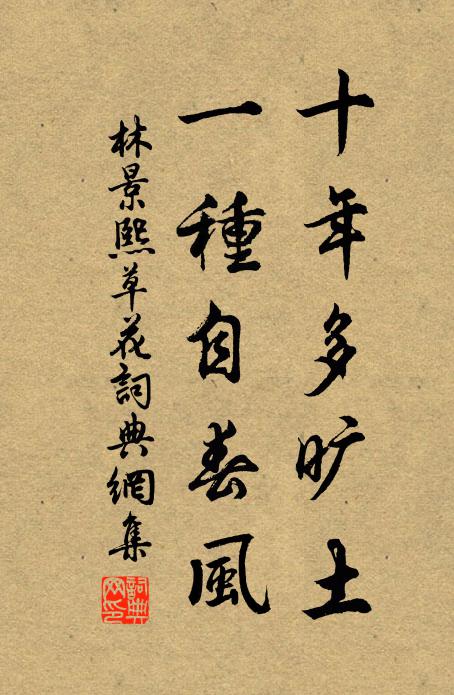 十年多旷土
一種自春風
林景熙草花詞典網集
詞典网印